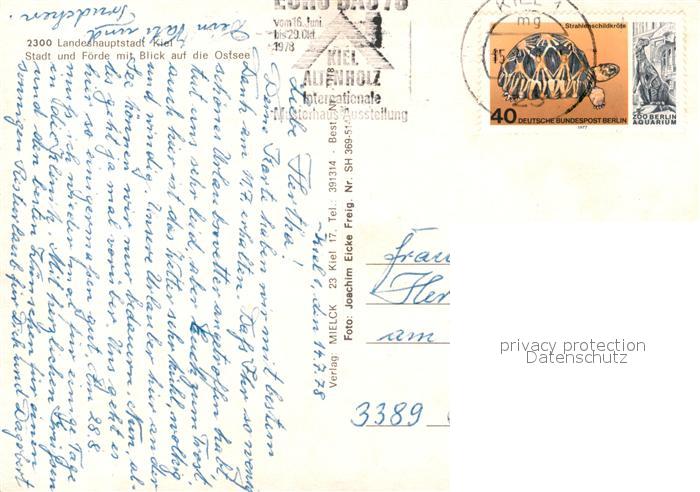 2300 Landeshauptstadt Kiel
Stadt und Förde mit Blick auf die Ostsee
EURO BAU 78
vom 16. Juni
bis 29. Okt.
1978
KIEL
ALTENHOLZ
Internationale
Musterhaus-Ausstellung
KIEL 1
mg
15.
23
Strahlenschildkröte
40 DEUTSCHE BUNDESPOST BERLIN
1977
ZOO BERLIN
AQUARIUM
Verlag: MIELCK 23 Kiel 17, Tel.: 391314 - Best.
Foto: Joachim Eicke Freig. Nr. SH 369-51
Kiel, den 14.7.78
Liebe Hertha!
Deine Karte haben wir mit bestem
Dank am 11.7. erhalten. Daß Ihr so wenig
schönes Urlaubswetter angetroffen habt,
tut uns sehr leid, aber Euch zum Trost,
auch hier ist das Wetter sehr kühl, wolkig
und windig. Unsere Urlauber hier an der
See können wir nur bedauern. Nun, al-
les geht ja mal vorüber. Uns geht es
hier so einigermaßen gut. Am 28.8.
wieder für einige Tage
Mit herzlichen Grüßen
und den besten Wünschen für einen
sonnigen Resturlaub für Dich und Dagobert
Dein Vati und
Trudchen.
Frau
Her
am
3389
privacy protection
Datenschutz